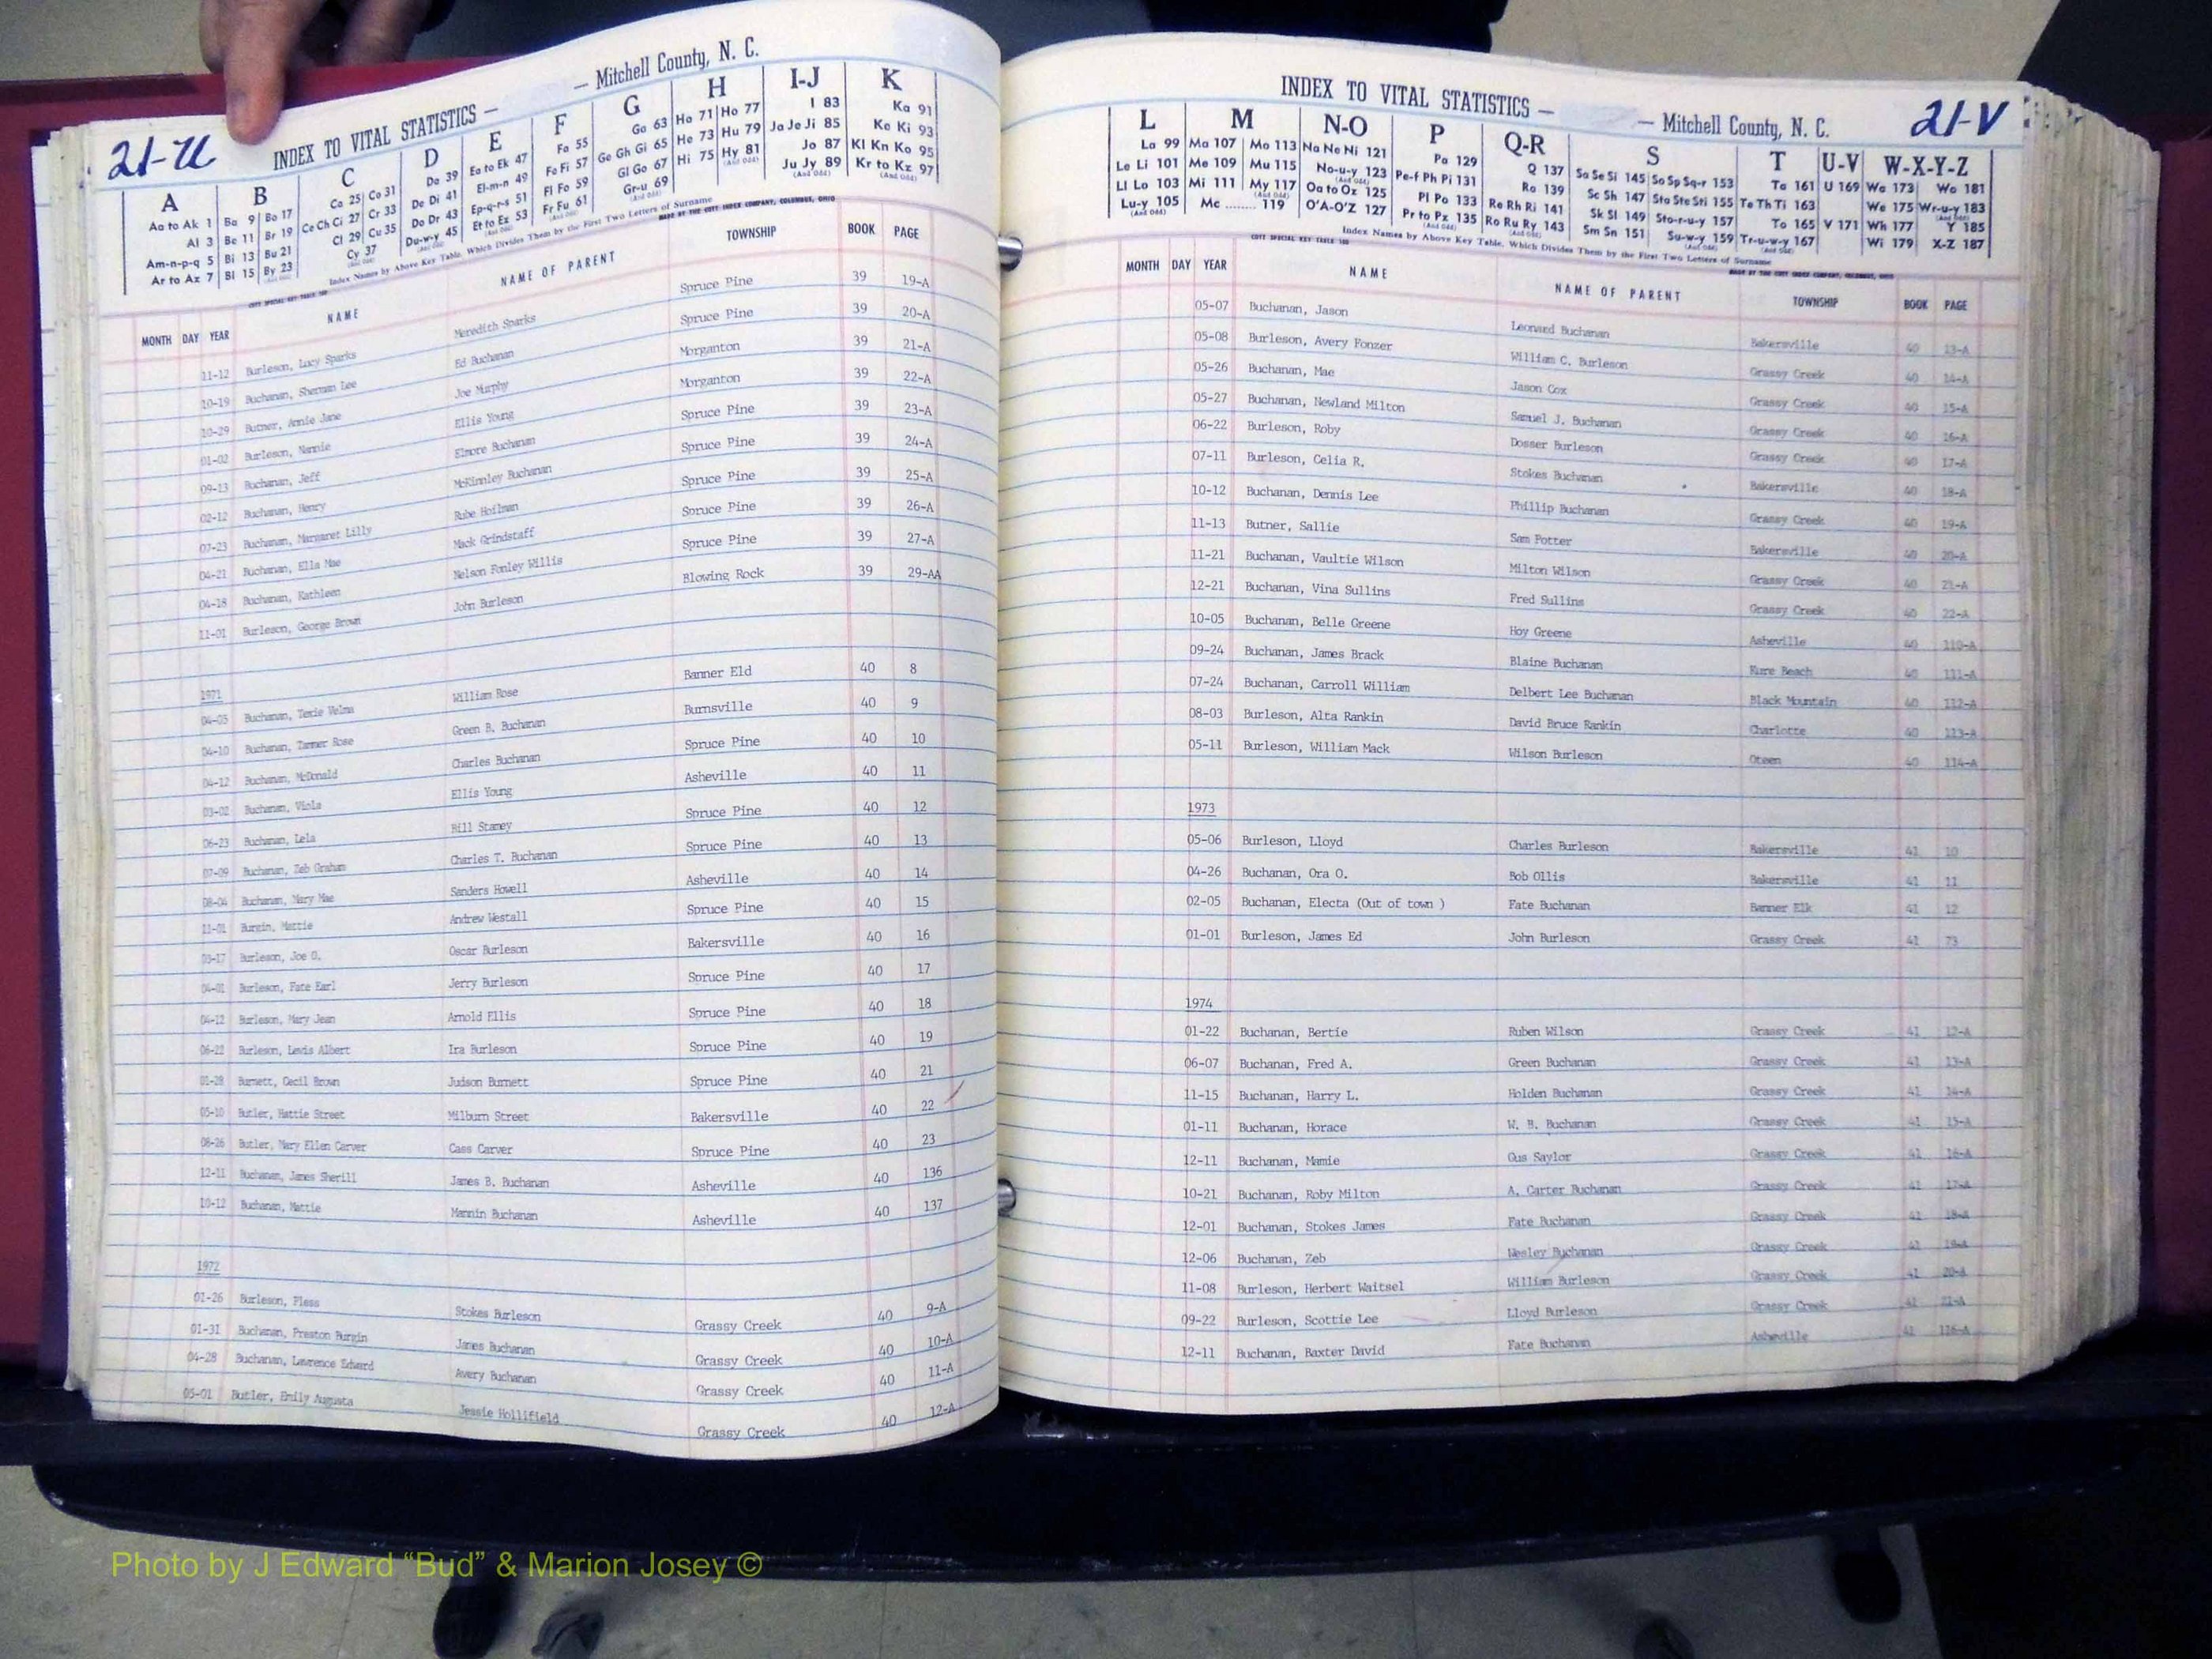 21-U
INDEX TO VITAL STATISTICS — — Mitchell County, N. C.
A B C D E F G H I-J K
Aa to Ak 1 Ba 9 Bo 17 Ca 25 Co 31 Da 39 Ea to Ek 47 Fa 55 Ga 63 Ha 71 Ho 77 I 83 Ka 91
Al 3 Be 11 Br 19 Ce Ch Ci 27 Cr 33 De Di 41 El-m-n 49 Fe Fi 57 Ge Gh Gi 65 He 73 Hu 79 Ja Je Ji 85 Ke Ki 93
Am-n-p-q 5 Bi 13 Bu 21 Cl 29 Cu 35 Do Dr 43 Ep-q-r-s 51 Fl Fo 59 Gl Go 67 Hi 75 Hy 81 Jo 87 Kl Kn Ko 95
Ar to Az 7 Bl 15 By 23 Cy 37 Du-w-y 45 Et to Ez 53 Fr Fu 61 Gr-u 69 Ju Jy 89 Kr to Kz 97
Index Names by Above Key Table, Which Divides Them by the First Two Letters of Surname
MADE BY THE COTT INDEX COMPANY, COLUMBUS, OHIO
MONTH DAY YEAR NAME NAME OF PARENT TOWNSHIP BOOK PAGE
11-12 Burleson, Lucy Sparks Meredith Sparks Spruce Pine 39 19-A
10-19 Buchanan, Sherman Lee Ed Buchanan Spruce Pine 39 20-A
10-29 Butner, Annie Jane Joe Murphy Morganton 39 21-A
01-02 Burleson, Nannie Ellis Young Morganton 39 22-A
09-13 Buchanan, Jeff Elmore Buchanan Spruce Pine 39 23-A
02-12 Buchanan, Henry McKinnley Buchanan Spruce Pine 39 24-A
07-23 Buchanan, Margaret Lilly Rube Hoilman Spruce Pine 39 25-A
04-21 Buchanan, Ella Mae Mack Grindstaff Spruce Pine 39 26-A
04-18 Buchanan, Kathleen Nelson Fonley Willis Spruce Pine 39 27-A
11-01 Burleson, George Brown John Burleson Blowing Rock 39 29-AA
1971
04-05 Buchanan, Texie Velma William Rose Banner Eld 40 8
04-10 Buchanan, Tanner Rose Green B. Buchanan Burnsville 40 9
04-12 Buchanan, McDonald Charles Buchanan Spruce Pine 40 10
03-02 Buchanan, Viola Ellis Young Asheville 40 11
06-23 Buchanan, Lela Bill Stamey Spruce Pine 40 12
07-09 Buchanan, Zeb Graham Charles T. Buchanan Spruce Pine 40 13
08-04 Buchanan, Mary Mae Sanders Howell Asheville 40 14
11-01 Burgin, Mattie Andrew Westall Spruce Pine 40 15
03-17 Burleson, Joe O. Oscar Burleson Bakersville 40 16
04-01 Burleson, Fate Earl Jerry Burleson Spruce Pine 40 17
04-12 Burleson, Mary Jean Arnold Ellis Spruce Pine 40 18
06-22 Burleson, Lewis Albert Ira Burleson Spruce Pine 40 19
01-28 Burnett, Cecil Brown Judson Burnett Spruce Pine 40 21
05-10 Butler, Hattie Street Milburn Street Bakersville 40 22
08-26 Butler, Mary Ellen Carver Cass Carver Spruce Pine 40 23
12-11 Buchanan, James Sherill James B. Buchanan Asheville 40 136
10-12 Buchanan, Mattie Mannin Buchanan Asheville 40 137
1972
01-26 Burleson, Pless Stokes Burleson Grassy Creek 40 9-A
01-31 Buchanan, Preston Burgin James Buchanan Grassy Creek 40 10-A
04-28 Buchanan, Lawrence Edward Avery Buchanan Grassy Creek 40 11-A
05-01 Butler, Emily Augusta Jessie Hollifield Grassy Creek 40 12-A
INDEX TO VITAL STATISTICS — — Mitchell County, N. C.
21-V
L M N-O P Q-R S T U-V W-X-Y-Z
La 99 Ma 107 Mo 113 Na Ne Ni 121 Pa 129 Q 137 Sa Se Si 145 So Sp Sq-r 153 Ta 161 U 169 Wa 173 Wo 181
Le Li 101 Me 109 Mu 115 No-u-y 123 Pe-f Ph Pi 131 Ra 139 Sc Sh 147 Sta Ste Sti 155 Te Th Ti 163 We 175 Wr-u-y 183
Ll Lo 103 Mi 111 My 117 Oa to Oz 125 Pl Po 133 Re Rh Ri 141 Sk Sl 149 Sto-r-u-y 157 To 165 V 171 Wh 177 Y 185
Lu-y 105 Mc ........ 119 O'A-O'Z 127 Pr to Pz 135 Ro Ru Ry 143 Sm Sn 151 Su-w-y 159 Tr-u-w-y 167 Wi 179 X-Z 187
Index Names by Above Key Table, Which Divides Them by the First Two Letters of Surname
MONTH DAY YEAR NAME NAME OF PARENT TOWNSHIP BOOK PAGE
05-07 Buchanan, Jason Leonard Buchanan Bakersville 40 13-A
05-08 Burleson, Avery Fonzer William C. Burleson Grassy Creek 40 14-A
05-26 Buchanan, Mae Jason Cox Grassy Creek 40 15-A
05-27 Buchanan, Newland Milton Samuel J. Buchanan Grassy Creek 40 16-A
06-22 Burleson, Roby Dosser Burleson Grassy Creek 40 17-A
07-11 Burleson, Celia R. Stokes Buchanan Bakersville 40 18-A
10-12 Buchanan, Dennis Lee Phillip Buchanan Grassy Creek 40 19-A
11-13 Butner, Sallie Sam Potter Bakersville 40 20-A
11-21 Buchanan, Vaultie Wilson Milton Wilson Grassy Creek 40 21-A
12-21 Buchanan, Vina Sullins Fred Sullins Grassy Creek 40 22-A
10-05 Buchanan, Belle Greene Hoy Greene Asheville 40 110-A
09-24 Buchanan, James Brack Blaine Buchanan Kure Beach 40 111-A
07-24 Buchanan, Carroll William Delbert Lee Buchanan Black Mountain 40 112-A
08-03 Burleson, Alta Rankin David Bruce Rankin Charlotte 40 113-A
05-11 Burleson, William Mack Wilson Burleson Oteen 40 114-A
1973
05-06 Burleson, Lloyd Charles Burleson Bakersville 41 10
04-26 Buchanan, Ora O. Bob Ollis Bakersville 41 11
02-05 Buchanan, Electa (Out of town ) Fate Buchanan Banner Elk 41 12
01-01 Burleson, James Ed John Burleson Grassy Creek 41 73
1974
01-22 Buchanan, Bertie Ruben Wilson Grassy Creek 41 12-A
06-07 Buchanan, Fred A. Green Buchanan Grassy Creek 41 13-A
11-15 Buchanan, Harry L. Holden Buchanan Grassy Creek 41 14-A
01-11 Buchanan, Horace W. B. Buchanan Grassy Creek 41 15-A
12-11 Buchanan, Mamie Gus Saylor Grassy Creek 41 16-A
10-21 Buchanan, Roby Milton A. Carter Buchanan Grassy Creek 41 17-A
12-01 Buchanan, Stokes James Fate Buchanan Grassy Creek 41 18-A
12-06 Buchanan, Zeb Wesley Buchanan Grassy Creek 41 19-A
11-08 Burleson, Herbert Waitsel William Burleson Grassy Creek 41 20-A
09-22 Burleson, Scottie Lee Lloyd Burleson Grassy Creek 41 21-A
12-11 Buchanan, Baxter David Fate Buchanan Asheville 41 116-A
Photo by J Edward “Bud” & Marion Josey ©